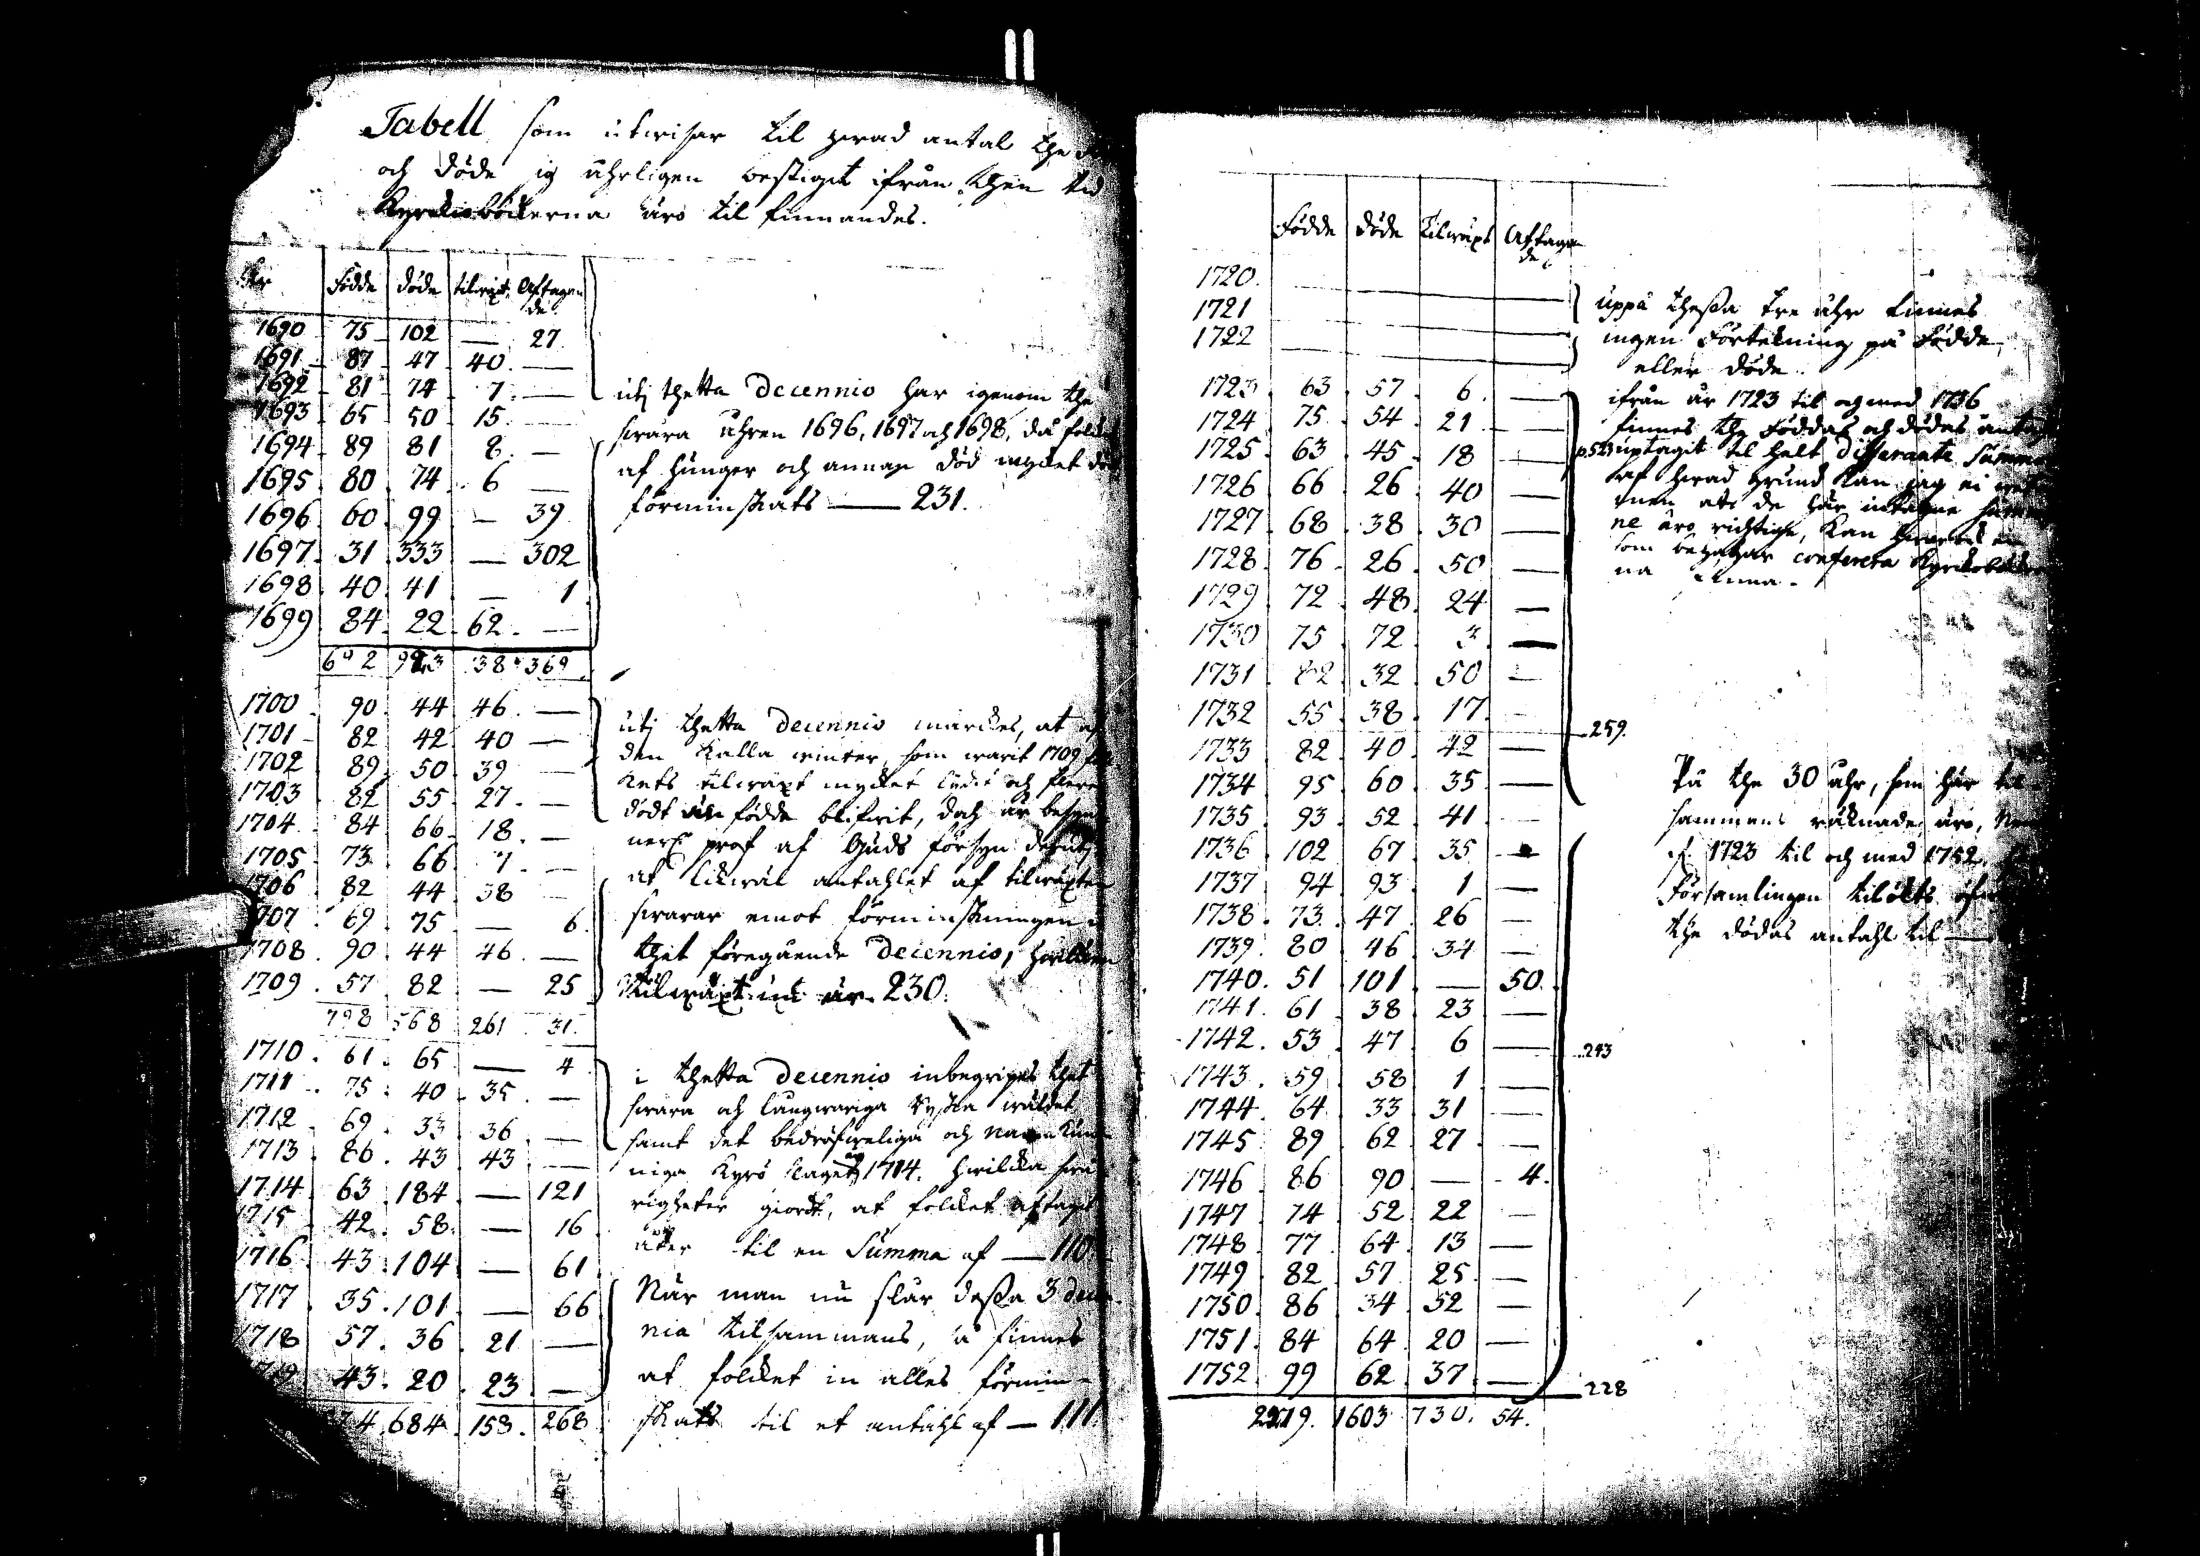 Tabell som utwisar til hwad antal the
och döde sig åhrligen bestiget ifrån then tid
Kyrckioböckerna äro til finnandes.
Födde döde tilwäxt Aftagande
1690 75 102 — 27
1691 87 47 40 —
1692 81 74 7 —
1693 65 50 15 —
1694 89 81 8 —
1695 80 74 6 —
1696 60 99 — 39
1697 31 333 — 302
1698 40 41 — 1
1699 84 22 62 —
692 923 138 369
utj thetta Decennio har igenom the
swåra åhren 1696, 1697 och 1698, då folck
af hunger och annan död mycket
förminskats — 231.
1700 90 44 46 —
1701 82 42 40 —
1702 89 50 39 —
1703 82 55 27 —
1704 84 66 18 —
1705 73 66 7 —
1706 82 44 38 —
1707 69 75 — 6
1708 90 44 46 —
1709 57 82 — 25
798 568 261 31
utj thetta Decennio märckes, at af
den kalla winter, som warit 1709
kets tilwäxt mycket lidit och flere
dödt än födde blifwit, doch är
prof af Guds försyn
at likwäl antahlet af tilwäxten
swarar emot förminskningen i
thet föregående Decennio, hwilken
tilwäxt är 230.
1710 61 65 — 4
1711 75 40 35 —
1712 69 33 36 —
1713 86 43 43 —
1714 63 184 — 121
1715 42 58 — 16
1716 43 104 — 61
1717 35 101 — 66
1718 57 36 21 —
43 20 23 —
4 684 158 268
i thetta Decennio inbegripes thet
swåra och långwariga Ryska wäldet
samt det bedröfweliga och
Kyrö slaget 1714. hwilcka swå
righeter giordt, at folcket aftagit
åter til en Summa af — 110.
När man nu slår dessa 3 dece
nia tilsammans, så finnes
at folcket in alles förmin-
skats til et antahl af — 111.
Födde döde tilwäxt Aftagande
1720
1721
1722
1723 63 57 6 —
1724 75 54 21 —
1725 63 45 18 —
1726 66 26 40 —
1727 68 38 30 —
1728 76 26 50 —
1729 72 48 24 —
1730 75 72 3 —
1731 82 32 50 —
1732 55 38 17 —
259.
1733 82 40 42 —
1734 95 60 35 —
1735 93 52 41 —
1736 102 67 35 —
1737 94 93 1 —
1738 73 47 26 —
1739 80 46 34 —
1740 51 101 — 50
1741 61 38 23 —
1742 53 47 6 —
243
1743 59 58 1 —
1744 64 33 31 —
1745 89 62 27 —
1746 86 90 — 4
1747 74 52 22 —
1748 77 64 13 —
1749 82 57 25 —
1750 86 34 52 —
1751 84 64 20 —
1752 99 62 37 —
228
1603 730 54
uppå thessa tre åhr finnes
ingen Förtekning på Födde
eller döde.
ifrån år 1723 til och med 1736
finnes the Föddas och dödas
uptagit til helt differante Summor
af hwad grund kan jag ei
men at de här intagne
ne äro richtige, kan
som behagar conferera Kyrckoböcker
na
På the 30 åhr, som här til
sammans räknade äro,
1723 til och med 1752,
Församlingen tilökts öfwer
the dödas antahl til —